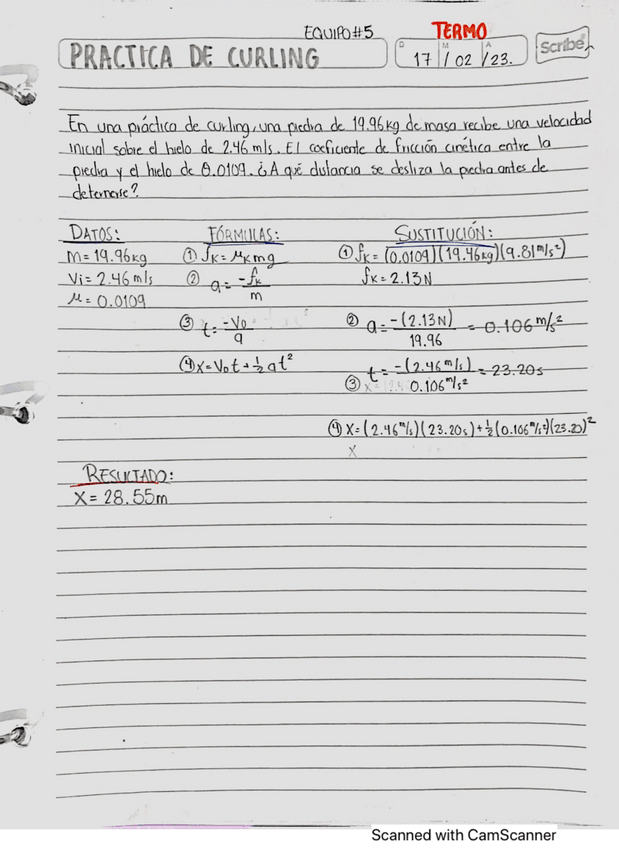 EQUIPO#5 TERMO
PRACTICA DE CURLING
D M A
17 / 02 / 23.
Scribe
En una práctica de curling, una piedra de 19.96kg de masa recibe una velocidad
inicial sobre el hielo de 2.46 m/s. El coeficiente de fricción cinética entre la
piedra y el hielo de 0.0109. ¿A qué distancia se desliza la piedra antes de
detenerse?
DATOS: FÓRMULAS: SUSTITUCIÓN:
m = 19.96kg ① fk = μk mg ① fk = (0.0109)(19.96kg)(9.81 m/s²)
Vi = 2.46 m/s ② a = -fk/m fk = 2.13N
μ = 0.0109
③ t = -Vo/a ② a = -(2.13N)/19.96 = 0.106 m/s²
④ x = Vo t + ½ at² ③ t = -(2.46 m/s)/0.106 m/s² = 23.20s
④ x = (2.46 m/s)(23.20s) + ½ (0.106 m/s²)(23.20)²
x
RESULTADO:
x = 28.55m
Scanned with CamScanner